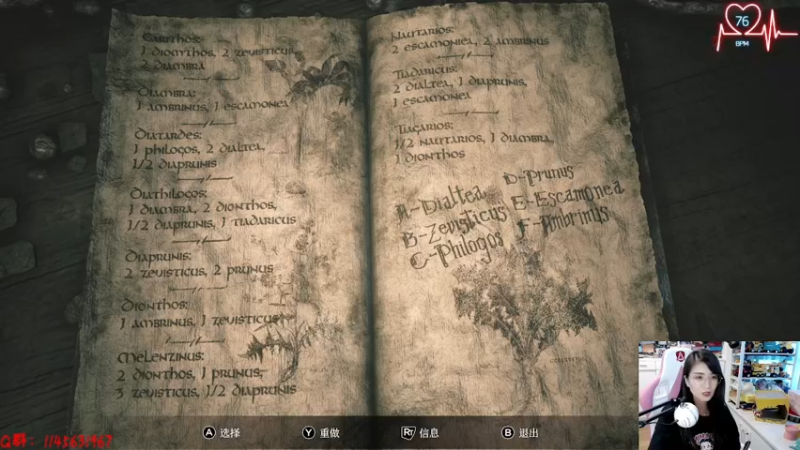 Carthos:
1 dionthos, 2 zevisticus,
2 diambra
Diambra:
1 ambrinus, 1 escamonea
Diatardes:
1 philogos, 2 dialtea,
1/2 diaprunis
Diathilogos:
1 diambra, 2 dionthos,
1/2 diaprunis, 1 tiadaricus
Diaprunis:
2 zevisticus, 2 prunus
Dionthos:
1 ambrinus, 1 zevisticus
Melenzinus:
2 dionthos, 1 prunus,
3 zevisticus, 1/2 diaprunis
Nautarios:
2 escamonea, 2 ambrinus
Tiadaricus:
2 dialtea, 1 diaprunis,
1 escamonea
Tiagarios:
1/2 nautarios, 1 diambra,
1 dionthos
A-Dialtea
B-Zevisticus
C-Philogos
D-Prunus
E-Escamonea
F-Ambrinus
76
BPM
A 选择
Y 重做
RT 信息
B 退出